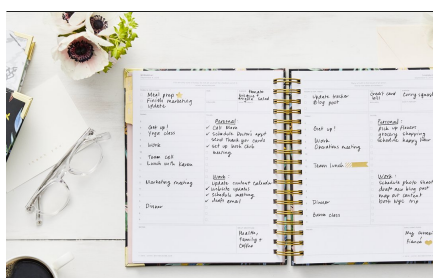 Meal prep
Finish marketing
update
Tomato
Salad
Get up!
Yoga class
Work
Team call
Lunch with Karen
Marketing meeting
Dinner
Personal:
✓ Call Mom
✓ Schedule Doctor's appt
✓ Send thank you cards
✓ Set up book club
meeting
Work:
✓ Update content calendar
✓ Schedule meeting
✓ draft email
Health,
Family +
Coffee
Update tracker
Blog post
Credit card
bill
Get up!
Work
Team lunch
Dinner
Barre class
Personal:
pick up flowers
grocery shopping
schedule happy hour
Work:
Schedule photo shoot
draft new blog post
map out content
book NYC trip